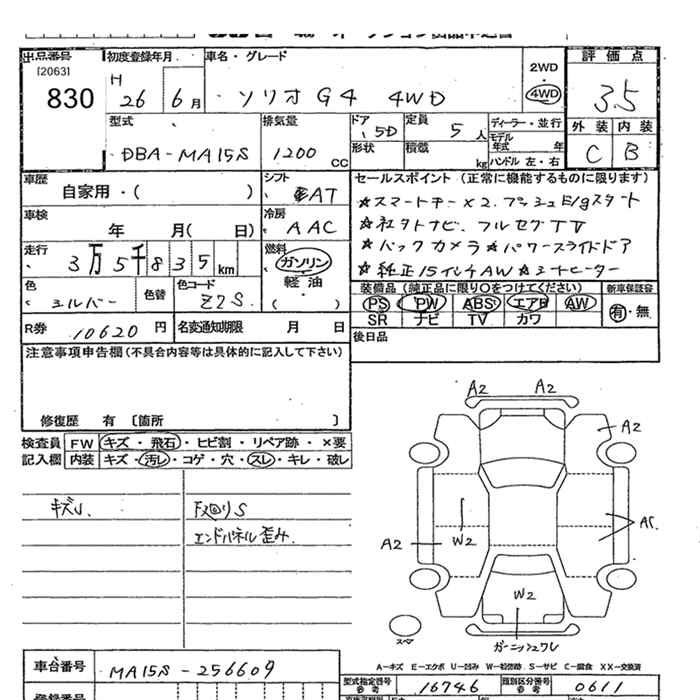 出品番号 初度登録年月 車名・グレード
[2063] 830
H 26 6月
ソリオ G4 4WD
2WD
・
4WD
評価点
3.5
外装 内装
C B
型式 排気量 ドア 定員 ディーラー・並行
DBA-MA15S 1200 CC
5D 5人
形状 積載 kg
モデル年式 年
ハンドル 左・右
車歴 シフト
自家用・( ) AT
車検 冷房
年 月( 日) AAC
走行 燃料
3万5千835km
ガソリン
・
軽油
( )
色 色替 色コード
シルバー Z2S
R券 10620円 名変通知期限 月 日
セールスポイント (正常に機能するものに限ります)
☆スマートキー×2. プッシュE/gスタート
☆社外ナビ、フルセグTV
☆バックカメラ☆パワースライドドア
☆純正15インチAW☆シートヒーター
装備品 (純正品に限り○をつけてください) 新車保証書
PS PW ABS エアB AW
SR ナビ TV カワ
有・無
後日品
注意事項申告欄(不具合内容等は具体的に記入して下さい)
修復歴 有 〔箇所 〕
検査員 FW キズ・飛石・ヒビ割・リペア跡・×要
記入欄 内装 キズ・汚レ・コゲ・穴・スレ・キレ・破レ
キズ
F廻りS
エンドパネル歪み.
A2 A2
A2
A2 W2
W2
ガーニッシュワレ
スペア
A-キズ E-エクボ U-凹み W-補修跡 S-サビ C-腐食 XX-交換済
車台番号 MA15S-256609
型式指定番号 参考 16746 類別区分番号 参考 0611
登録番号